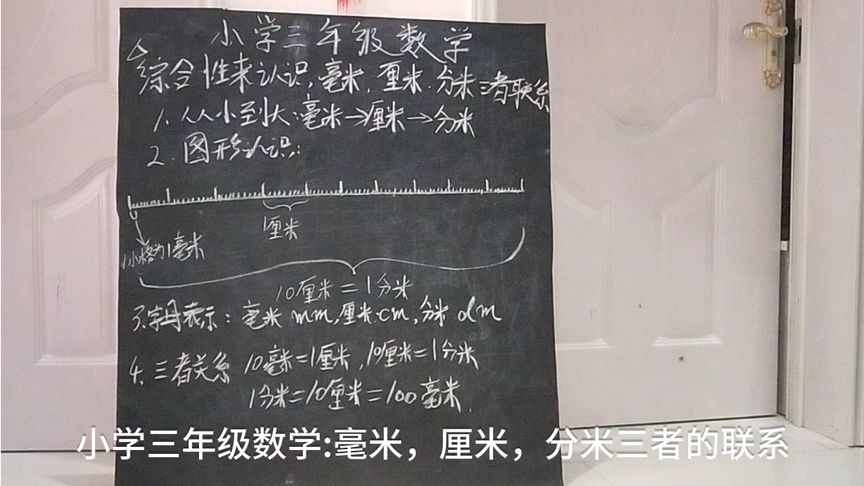 小学三年级数学
综合性来认识,毫米,厘米.分米三者联系
1.从小至大:毫米→厘米→分米
2.图形认识:
1厘米
1小格为1毫米
10厘米=1分米
3.字母表示:毫米mm,厘米cm,分米dm
4.三者关系 10毫米=1厘米,10厘米=1分米
1分米=10厘米=100毫米.
小学三年级数学:毫米，厘米，分米三者的联系